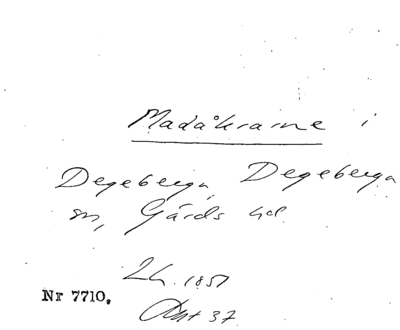 Madåkrarne i
Degeberga, Degeberga
sn, Gärds hd.
1857
Nr 7710.
37